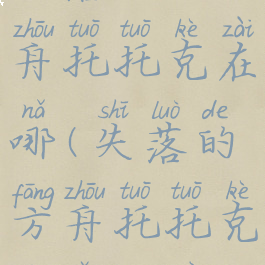 zhōu tuō tuō kè zài
舟托托克在
nǎ shī luò de
哪(失落的
fāng zhōu tuō tuō kè
方舟托托克